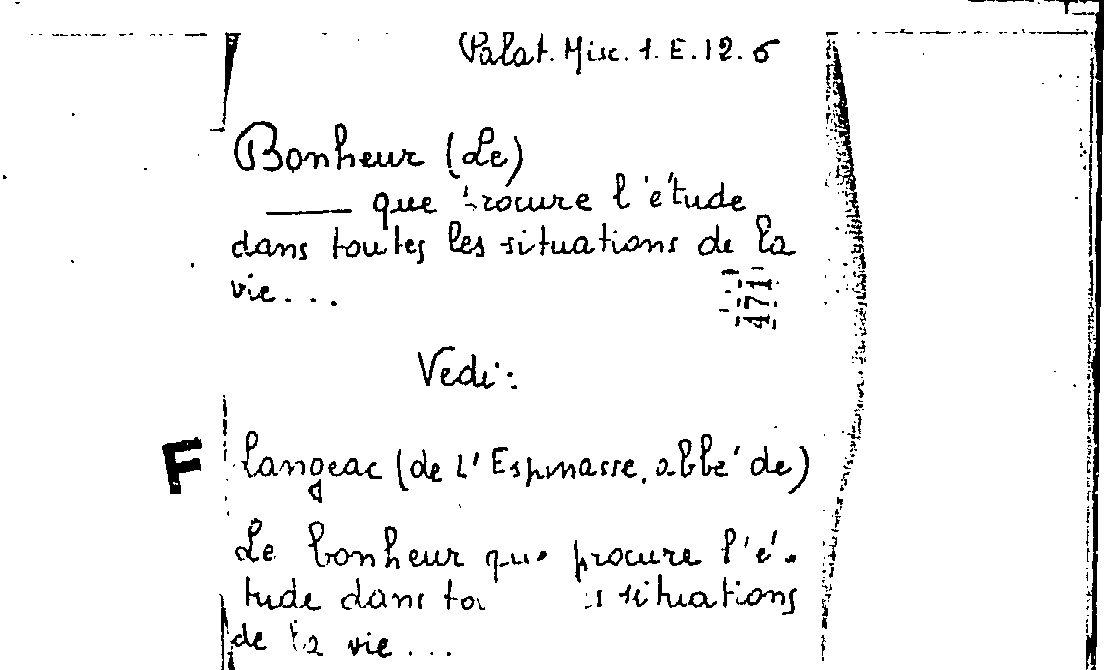 Palat. Misc. 1. E. 12. 6
Bonheur (Le)
—— que procure l'étude
dans toutes les situations de la
vie...
471
Vedi:
F Langeac (de L'Espinasse, abbé de)
Le bonheur que procure l'é-
tude dans situations
de la vie...